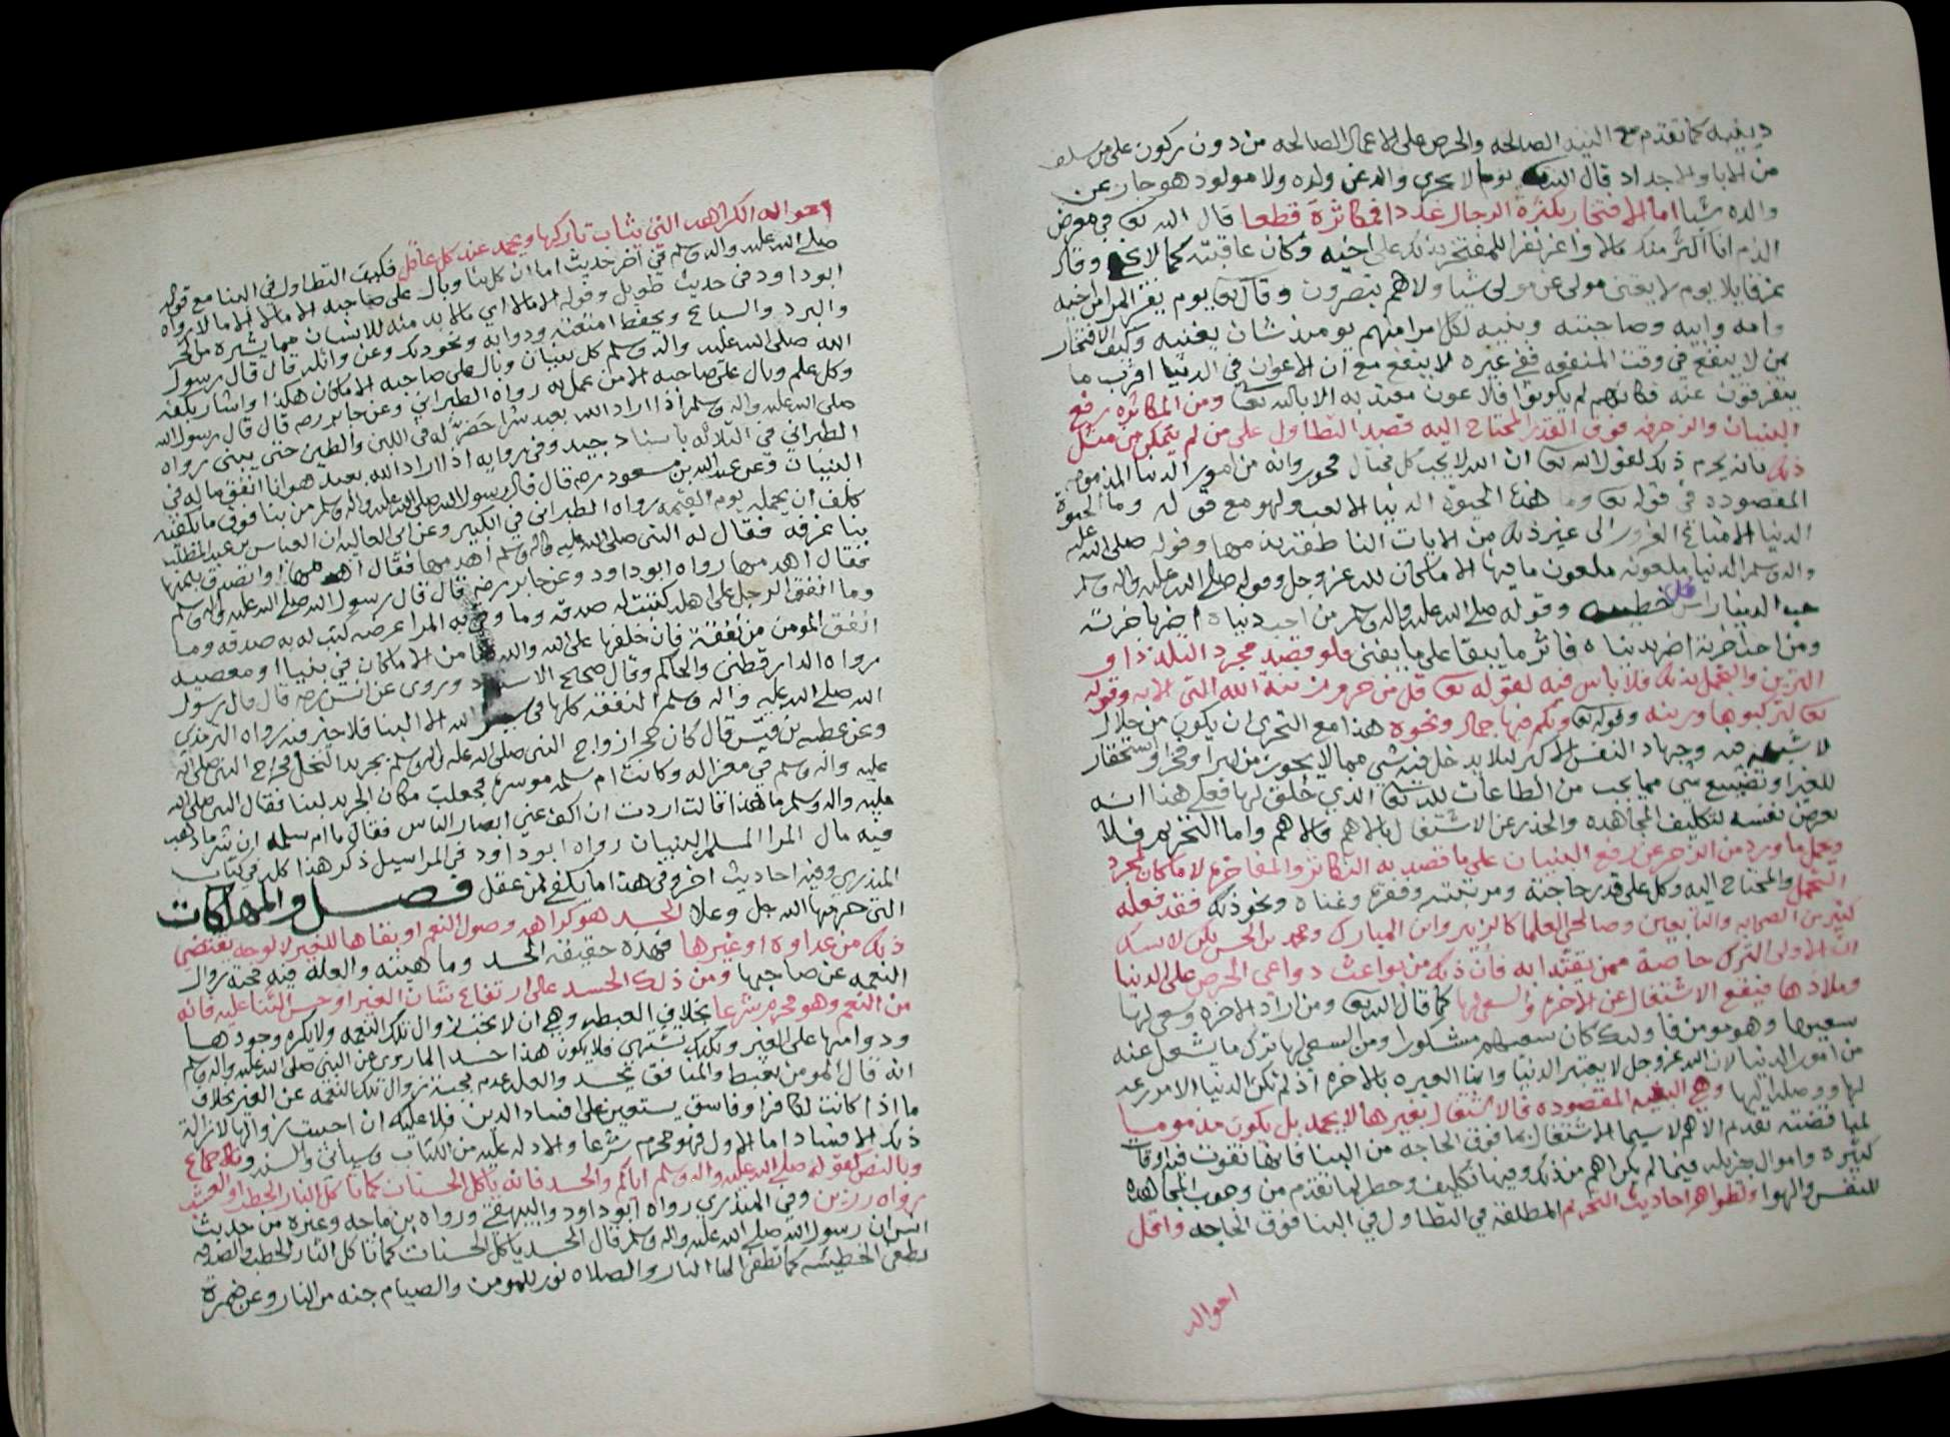 دينيه كما تقدم مع النيه الصالحه والحرص على الاعمال الصالحه من دون ركون على من سلف
من الابا والاجداد قال الله يوما لا يجزي والد عن ولده ولا مولود هو جاز عن
والده شيا اما الافتخار بكثرة الرجال عددا فمكاثرة قطعا قال الله تعا في معرض
الذم انا اكثر منك مالا واعز نفرا للمفتخر بذلك على اخيه وكان عاقبته كما لا يخفى وقال
عز قايلا يوم لا يغني مولى عن مولى شيا ولا هم ينصرون وقال تعا يوم يفر المرا من اخيه
وامه وابيه وصاحبته وبنيه لكل امرا منهم يومئذ شان يغنيه وكيف الافتخار
بمن لا ينفع في وقت المنفعه ففي غيره لا ينفع مع ان الاعوان في الدنيا اقرب ما
يتفرقون عنه فكانهم لم يكونوا فلا عون معتد به الا بالله تعا ومن المكاثره رفع
البنيان والزخرفه فوق القدر المحتاج اليه قصد التطاول على من لم يتمكن من مثل
ذلك فانه يحرم ذلك لقول الله تعا ان الله لا يحب كل مختال فخور وانه من امور الدنيا المذمومه
المقصوده في قوله تعا وما هذه الحيوة الدنيا الا لعب ولهو مع قوله وما الحيوة
الدنيا الا متاع الغرور الى غير ذلك من الايات الناطقة بذمها وقوله صلى الله عليه
واله وسلم الدنيا ملعونه ملعون ما فيها الا ما كان لله عز وجل وقوله صلى الله عليه واله وسلم
حب الدنيا راس كل خطيئه وقوله صلى الله عليه واله وسلم من احب دنياه اضر باخرته
ومن احب اخرته اضر بدنياه فاثر ما يبقا على ما يفنى فلو قصد مجرد التلذذ او
التزين والتجمل بذلك فلا باس فيه لقوله تعا قل من حرم زينة الله التي الايه وقوله
تعا لتركبوها وزينه وقوله تعا ولكم فيها جمال ونحوه هذا مع التحري ان يكون من حلال
لا شبهه فيه وجهاد النفس الاكبر ليلا يدخل فيه شي مما لا يجوز من الهوا وفخر او استحقار
للغير او تضييع شي مما يجب من الطاعات لله تعا الذي خلق لها فعلى هذا انه
يعرض نفسه لتكليف المجاهده والحذر عن الاشتغال بالاهم فالاهم واما التحريم فلا
ويحمل ما ورد من الزجر عن رفع البنيان على ما قصد به التكاثر والمفاخره لا ما كان لمجرد
التجمل والمحتاج اليه وكل على قدر حاجته ومرتبته وفقره وغناه ونحو ذلك فقد فعله
كثير من الصحابه والتابعين وصالحي العلما كالزبير وابن المبارك ومحمد بن الحسن لكن لا شك
ان الاولى الترك خاصة ممن يقتدا به فان ذلك من بواعث دواعي الحرص على الدنيا
وملاذها فيقع الاشتغال عن الاخره والسعي لها كما قال الله تعا ومن اراد الاخره وسعى لها
سعيها وهو مومن فاوليك كان سعيهم مشكورا ومن السعي لها ترك ما يشغل عنه
من امور الدنيا لان الله عز وجل لا يعتبر الدنيا وانما العبره بالاخره اذ لم تكن الدنيا الا مزرعه
لها ووصله اليها وهي البغيه المقصوده فالاشتغال بغيرها لا يحمد بل يكون مذموما
لمناقضته تقديم الاهم لاسيما الاشتغال بما فوق الحاجه من البنا فانها تفوت فيه اوقات
كثيره واموال جزيله فيما لم يكن اهم من ذلك وفيها تكليف وخطر لما تقدم من وجوب المجاهده
للنفس والهوا ولظواهر احاديث التحريم المطلقه في التطاول في البنا فوق الحاجه واقل
احواله
احواله الكراهه التي يثاب تاركها ويحمد عند كل عاقل فكيف التطاول في البنا مع قوله
صلى الله عليه واله وسلم في اخر حديث اما ان كل بنا وبال على صاحبه الا مالا الا مالا رواه
ابو داود في حديث طويل وقوله الا مالا اي مالا بد منه للانسان مما يستره من الحر
والبرد والسباع ويحفظ امتعته ودوابه ونحو ذلك وعن واثله قال قال رسول
الله صلى الله عليه واله وسلم كل بنيان وبال على صاحبه الا ما كان هكذا واشار بكفه
وكل علم وبال على صاحبه الا من عمل به رواه الطبراني وعن جابر رضه قال قال رسول الله
صلى الله عليه واله وسلم اذا اراد الله بعبد شرا خضر له في اللبن والطين حتى يبنى رواه
الطبراني في الثلاثه باسناد جيد وفي روايه اذا اراد الله بعبد هوانا انفق ماله في
البنيان وعن عبد الله بن مسعود رضه قال قال رسول الله صلى الله عليه واله وسلم من بنا فوق ما يكفيه
كلف ان يحمله يوم القيمه رواه الطبراني في الكبير وعن ابي العاليه ان العباس بن عبد المطلب
بنا غرفه فقال له النبي صلى الله عليه واله وسلم اهدمها فقال اهدمها او اتصدق بثمنها
فقال اهدمها رواه ابو داود وعن جابر رضه قال قال رسول الله صلى الله عليه واله وسلم
وما انفق الرجل على اهله كتبت له صدقه وما وقى به المرا عرضه كتب له به صدقه وما
انفق المومن من نفقة فان خلفها على الله والله ضامن الا ما كان في بنيا او معصيه
رواه الدارقطني والحاكم وقال صحيح الاسناد وروى عن انس رضه قال قال رسول
الله صلى الله عليه واله وسلم النفقه كلها في سبيل الله الا البنا فلا خير فيه رواه الترمذي
وعن عطيه بن قيس قال كان حجر ازواج النبي صلى الله عليه واله وسلم بجريد النخل فخرج النبي صلى الله
عليه واله وسلم في مغزا له وكانت ام سلمه موسرة فجعلت مكان الجريد لبنا فقال النبي صلى الله
عليه واله وسلم ما هذا قالت اردت ان اكف عني ابصار الناس فقال يا ام سلمه ان شر ما ذهب
فيه مال المرا المسلم البنيان رواه ابو داود في المراسيل ذكر هذا كله في كتاب
المنذري وفيه احاديث اخر وفي هذا ما يكفي لمن عقل فصــل والمهلكات
التي حرمها الله جل وعلا الحسد هو كراهه وصول النعم او بقاها للغير لا لوجه يقتضي
ذلك من عداوه او غيرها فهذه حقيقة الحسد وماهيته والعله فيه محبة زوال
النعمه عن صاحبها ومن ذلك الحسد على ارتفاع شان الغير او حسن الثنا عليه فانه
من النعم وهو محرم شرعا بخلاف الغبطه وهي ان لا يحب زوال تلك النعمه ولا يكره وجودها
ودوامها على الغير ولكنك تشتهي فلا يكون هذا حسدا لما روي عن النبي صلى الله عليه واله وسلم
انه قال المومن يغبط والمنافق يحسد والعله عدم محبته زوال تلك النعمه عن الغير بخلاف
ما اذا كانت لكافر او فاسق يستعين على افساد الدين فلا عليه ان احببت زوالها لازالة
ذلك الافساد اما الاول فهو محرم شرعا والادله عليه من الكتاب وسياتي والسنه والاجماع
وبالنص لقوله صلى الله عليه واله وسلم اياكم والحسد فانه ياكل الحسنات كما تاكل النار الحطب او العشب
رواه رزين وفي المنذري رواه ابو داود والبيهقي ورواه بن ماجه وغيره من حديث
انس ان رسول الله صلى الله عليه واله وسلم قال الحسد ياكل الحسنات كما تاكل النار الحطب والصدقه
تطفي الخطيئه كما تطفي الما النار والصلاه نور المومن والصيام جنه من النار وعن ضمرة